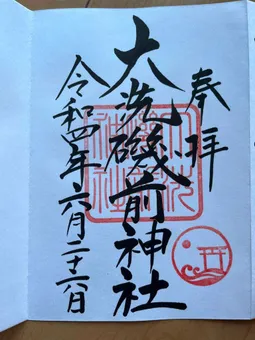 奉拝
大洗磯前神社
令和四年六月二十六日